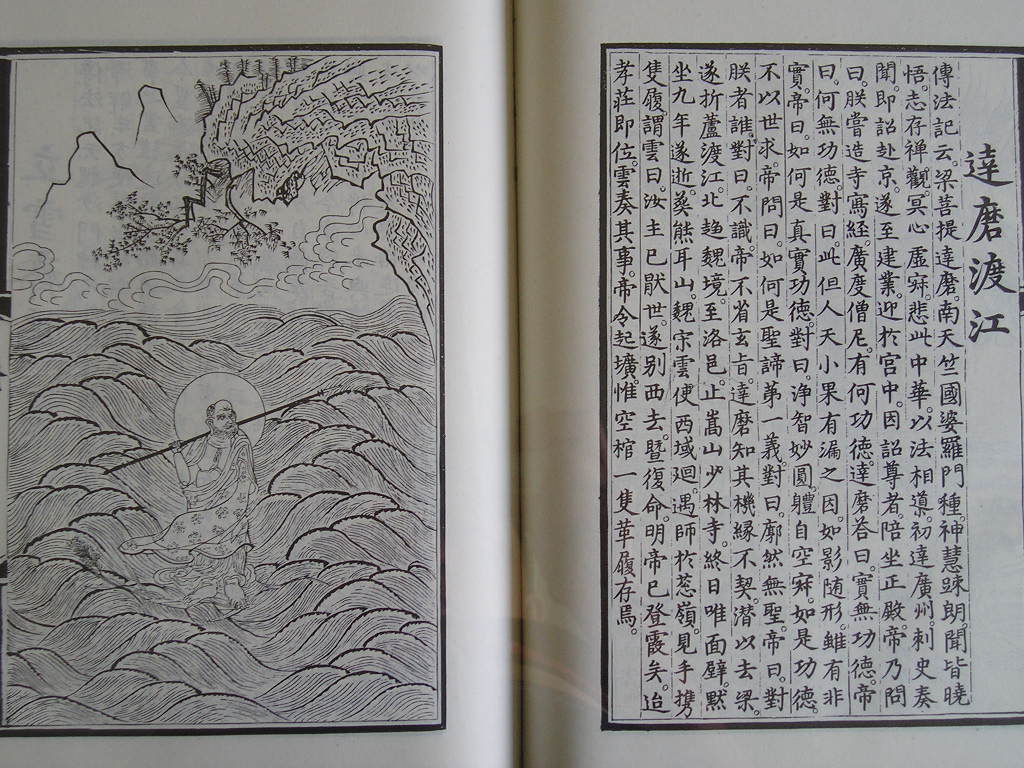 達磨渡江
傳法記云。梁菩提達磨。南天竺國婆羅門種。神慧踈朗。聞皆曉
悟。志存禅觀。冥心虛寂。悲此中華。以法相導。初達廣州。刺史奏
聞。即詔赴京。遂至建業。迎於宮中。因詔尊者。陪坐正殿。帝乃問
曰。朕嘗造寺寫経。廣度僧尼。有何功德。達磨答曰。實無功德。帝
曰。何無功德。對曰。此但人天小果有漏之因。如影随形。雖有非
實。帝曰。如何是真實功德。對曰。浄智妙圓。軆自空寂。如是功德。
不以世求。帝問曰。如何是聖諦弟一義。對曰。廓然無聖。帝曰。對
朕者誰。對曰。不識。帝不省玄旨。達磨知其機縁不契。潜以去梁。
遂折蘆渡江。北趍魏境。至洛邑。止嵩山少林寺。終日唯面壁默
坐九年。遂逝。葬熊耳山。魏宋雲使西域廻。遇師於葱嶺。見手携
隻履。謂雲曰。汝主已厭世。遂别西去。暨復命。明帝已登霞矣。迨
孝莊即位。雲奏其事。帝令起壙。惟空棺一隻革履存焉。